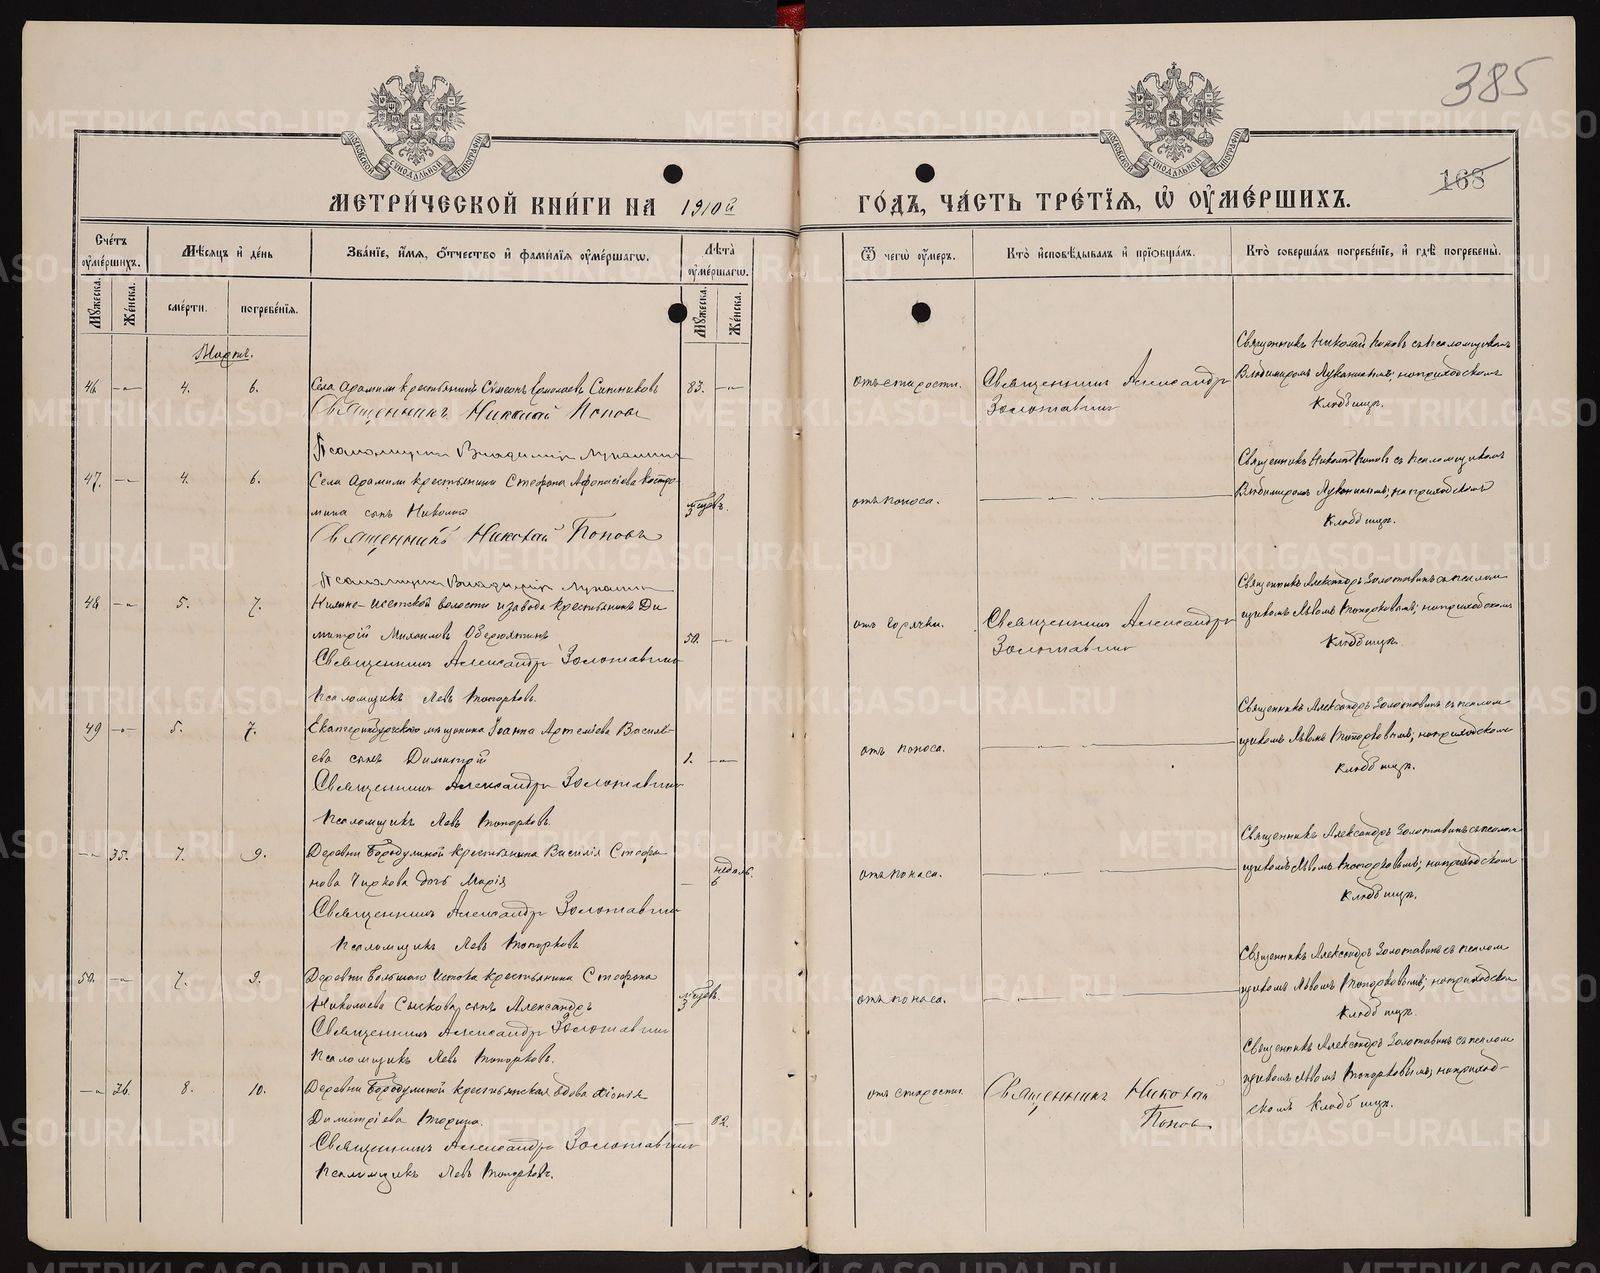 385
168
МЕТРИ́ЧЕСКОЙ КНИ́ГИ НА 1910й ГО́ДЪ, ЧА́СТЬ ТРЕ́ТЇЯ, Ѡ҆ ОУ҆МЕ́РШИХЪ.
Сче́тъ оу҆ме́ршихъ.
Мѣ́сяцъ и҆ де́нь
Зва́нїе, и҆́мя, ѻ҆́тчество и҆ фами́лїя оу҆ме́ршагѡ.
Лѣ́та оу҆ме́ршагѡ.
Ѿ чегѡ̀ оу҆́меръ.
Кто̀ и҆сповѣ́дывалъ и҆ прїѻбща́лъ.
Кто̀ соверша́лъ погребе́нїе, и҆ гдѣ̀ погребены̀.
Мꙋ́жеска.
Же́нска.
сме́рти.
погребе́нїя.
Мꙋ́жеска.
Же́нска.
Мартъ.
46 4. 6. Села Арамили крестьянинъ Сѵмеонъ Ермолаевъ Ситниковъ 83.
Священникъ Николай Поповъ
Псаломщикъ Владимір Луканин
отъ старости.
Священник Александр
Золотавин
Священникъ Николай Поповъ съ псаломщикомъ
Владимиромъ Луканинымъ; на приходскомъ
кладбищѣ.
47. 4. 6. Села Арамили крестьянина Стефана Афонасіева Костро-
мина сынъ Николай 3 мѣсяц.
Священникъ Николай Поповъ
Псаломщикъ Владимір Луканин
отъ поноса.
Священникъ Николай Поповъ съ псаломщикомъ
Владимиромъ Луканинымъ; на приходскомъ
кладбищѣ.
48 5. 7. Нижне-Исетской волости и завода крестьянинъ Ди-
митрій Михаиловъ Оберюхтинъ 50.
Священник Александр Золотавин
Псаломщикъ Левъ Топорковъ.
отъ горячки.
Священник Александр
Золотавин
Священникъ Александръ Золотавинъ съ псалом
щикомъ Львомъ Топорковымъ; на приходскомъ
кладбищѣ.
49 5. 7. Екатеринбургскаго мѣщанина Іоанна Артеміева Василь-
ева сынъ Димитрій 1.
Священник Александр Золотавин
Псаломщикъ Левъ Топорковъ.
отъ поноса.
Священникъ Александръ Золотавинъ съ псалом
щикомъ Львомъ Топорковымъ; на приходскомъ
кладбищѣ.
35. 7. 9. Деревни Бородулиной крестьянина Василія Стефа-
нова Чиркова дочь Марія 6 недѣль.
Священник Александр Золотавин
Псаломщикъ Левъ Топорковъ
отъ поноса.
Священникъ Александръ Золотавинъ съ псалом
щикомъ Львомъ Топорковымъ; на приходскомъ
кладбищѣ.
50. 7. 9. Деревни Большаго Истока крестьянина Стефана
Николаева Сыскова сынъ Александръ 3 мѣсяц.
Священник Александр Золотавин
Псаломщикъ Левъ Топорковъ.
отъ поноса.
Священникъ Александръ Золотавинъ съ псалом
щикомъ Львомъ Топорковымъ; на приходском
кладбищѣ.
36. 8. 10. Деревни Бородулиной крестьянская вдова Ксенія
Димитріева 82.
Священник Александр Золотавин
Псаломщикъ Левъ Топорковъ.
отъ старости.
Священникъ Николай
Попов
Священникъ Александръ Золотавинъ съ псалом
щикомъ Львомъ Топорковымъ; на приход-
скомъ кладбищѣ.
METRIKI.GASO-URAL.RU